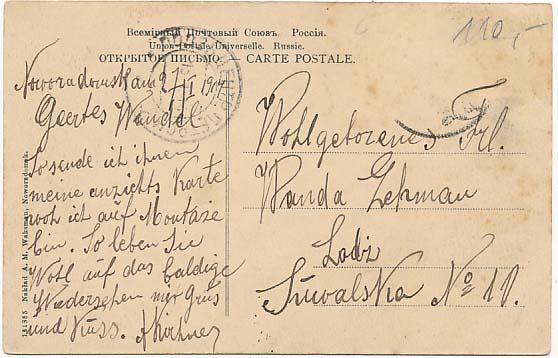 Всемірный Почтовый Союзъ. Россія.
Union Postale Universelle. Russie.
ОТКРЫТОЕ ПИСЬМО. — CARTE POSTALE.
110,-
Noworadomsk am 2/I 1907
Geertes Wandel
So sende ich ihnen
meine anzichts Karte
woh ich auf Montaze
bin. So leben Sie
Wohl auf das baldige
Wiedersehen mir Grus
und Kuss. A Kirchner
Wohlgeborenes Frl.
Wanda Lehman
Lodz
Suwalska No 11.
Nakład A. M. Waksman, Noworadomsk.